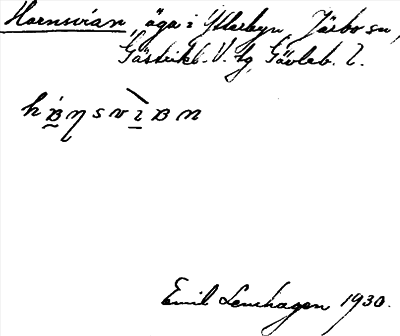 Hornsvian, äga i Ytterbyn, Järbo sn,
Gästrikl. V. tg, Gävleb. l.
Emil Lenhagen 1930.